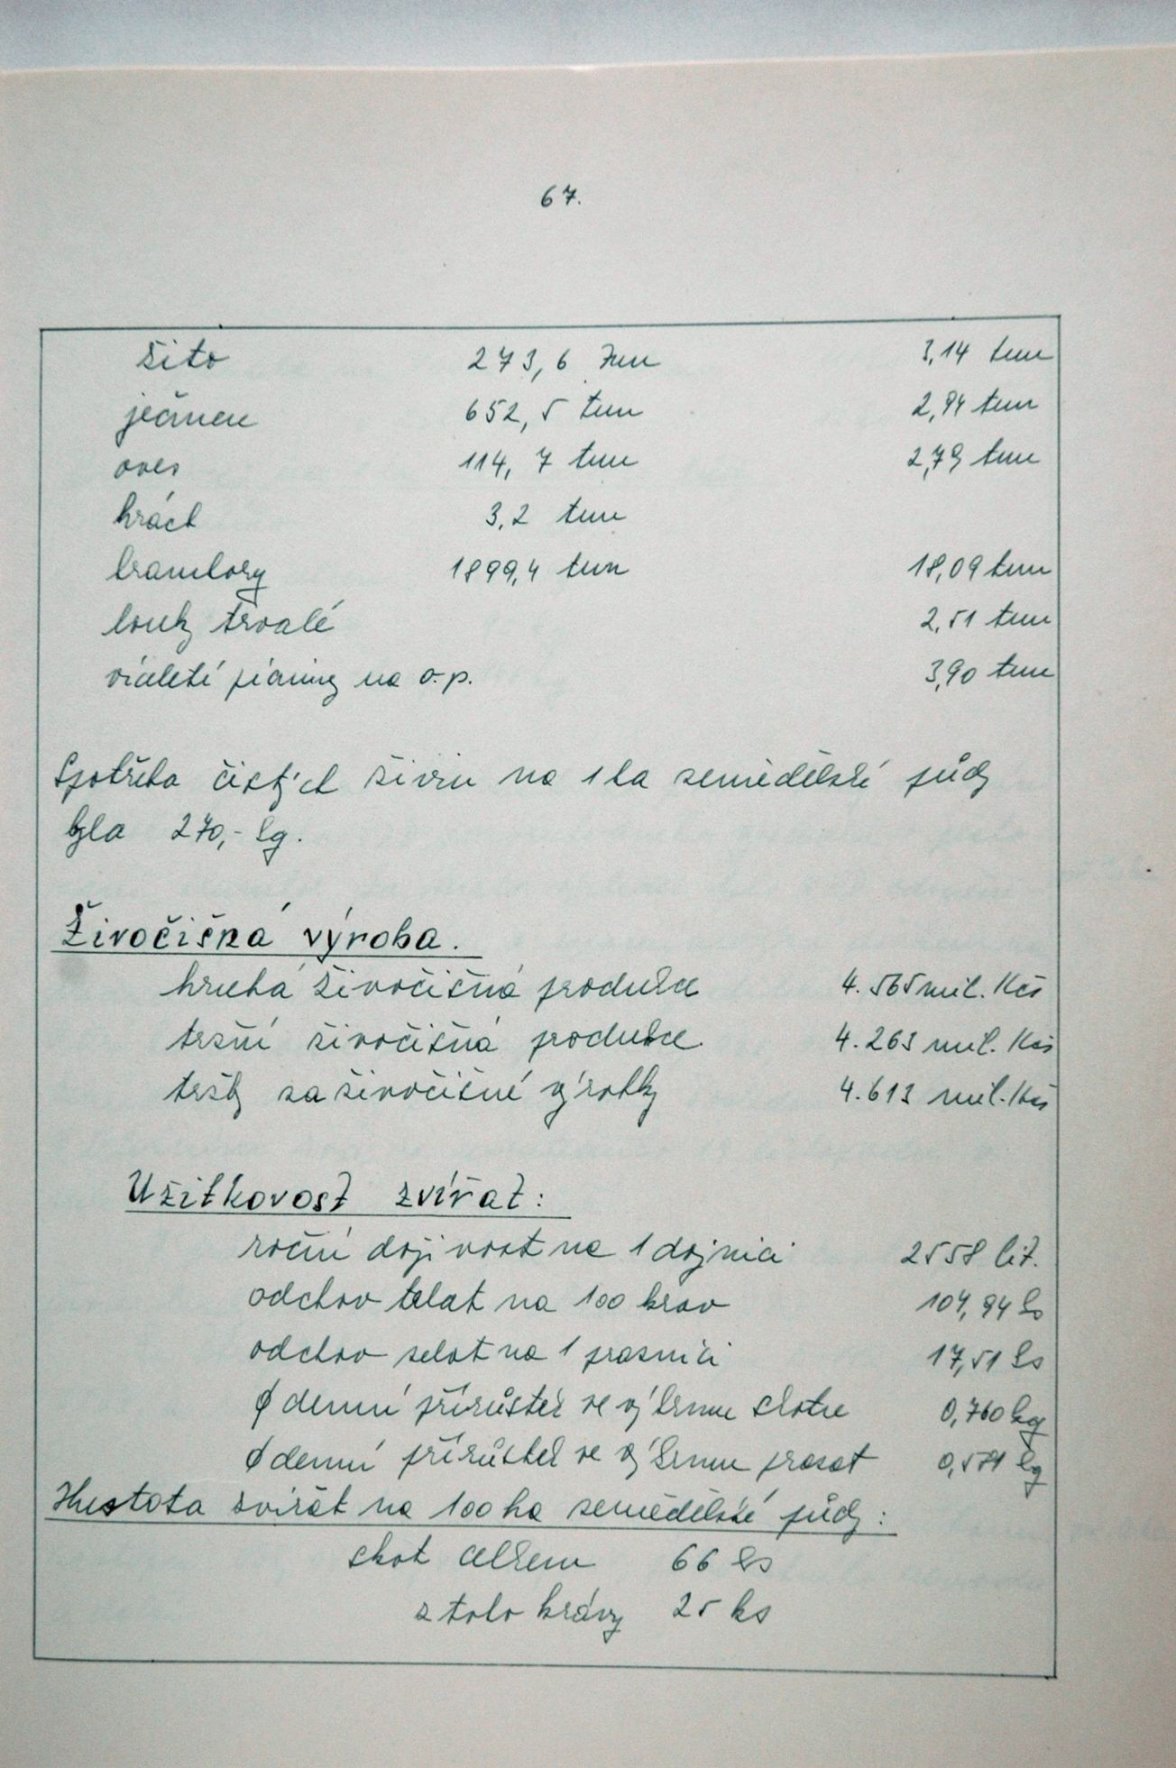 67.
žito 273,6 tun 3,14 tun
ječmen 652,5 tun 2,94 tun
oves 114,7 tun 2,79 tun
hrách 3,2 tun
brambory 1899,4 tun 18,09 tun
louky trvalé 2,51 tun
víceleté pícniny na o.p. 3,90 tun
Spotřeba čistých živin na 1 ha zemědělské půdy
byla 270,- kg.
Živočišná výroba.
hrubá živočišná produkce 4.565 mil. Kčs
tržní živočišná produkce 4.263 mil. Kčs
tržby za živočišné výrobky 4.613 mil. Kčs
Užitkovost zvířat:
roční dojivost na 1 dojnici 2558 lit.
odchov telat na 100 krav 104,94 ks
odchov selat na 1 prasnici 17,51 ks
ϕ denní přírůstek ve výkrmu skotu 0,760 kg
ϕ denní přírůstek ve výkrmu prasat 0,571 kg
Hustota zvířat na 100 ha zemědělské půdy:
skot celkem 66 ks
z toho krávy 25 ks